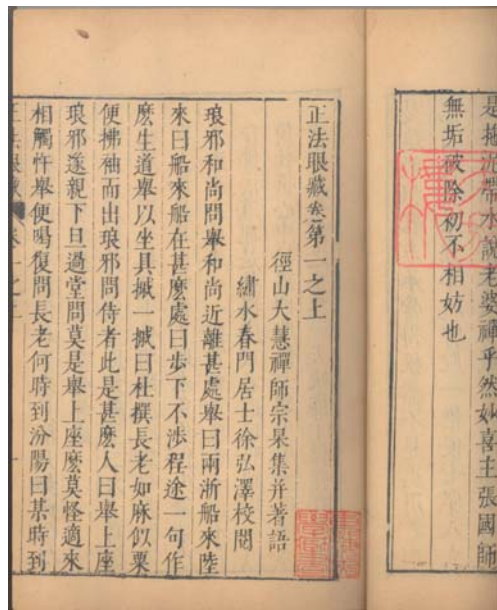 是拖泥帶水說老婆禪乎然妙喜主張國師
無垢破除初不相妨也
正法眼藏卷第一之上
徑山大慧禪師宗杲集并著語
繡水春門居士徐弘澤校閱
琅邪和尚問舉和尚近離甚處舉曰兩浙船來陸
來曰船來船在甚麼處曰步下不涉程途一句作
麼生道舉以坐具摵一摵曰杜撰長老如麻似粟
便拂袖而出琅邪問侍者此是甚麼人曰舉上座
琅邪遂親下旦過堂問莫是舉上座麼莫怪適來
相觸忤舉便喝復問長老何時到汾陽曰某時到
正法眼藏 卷一之上